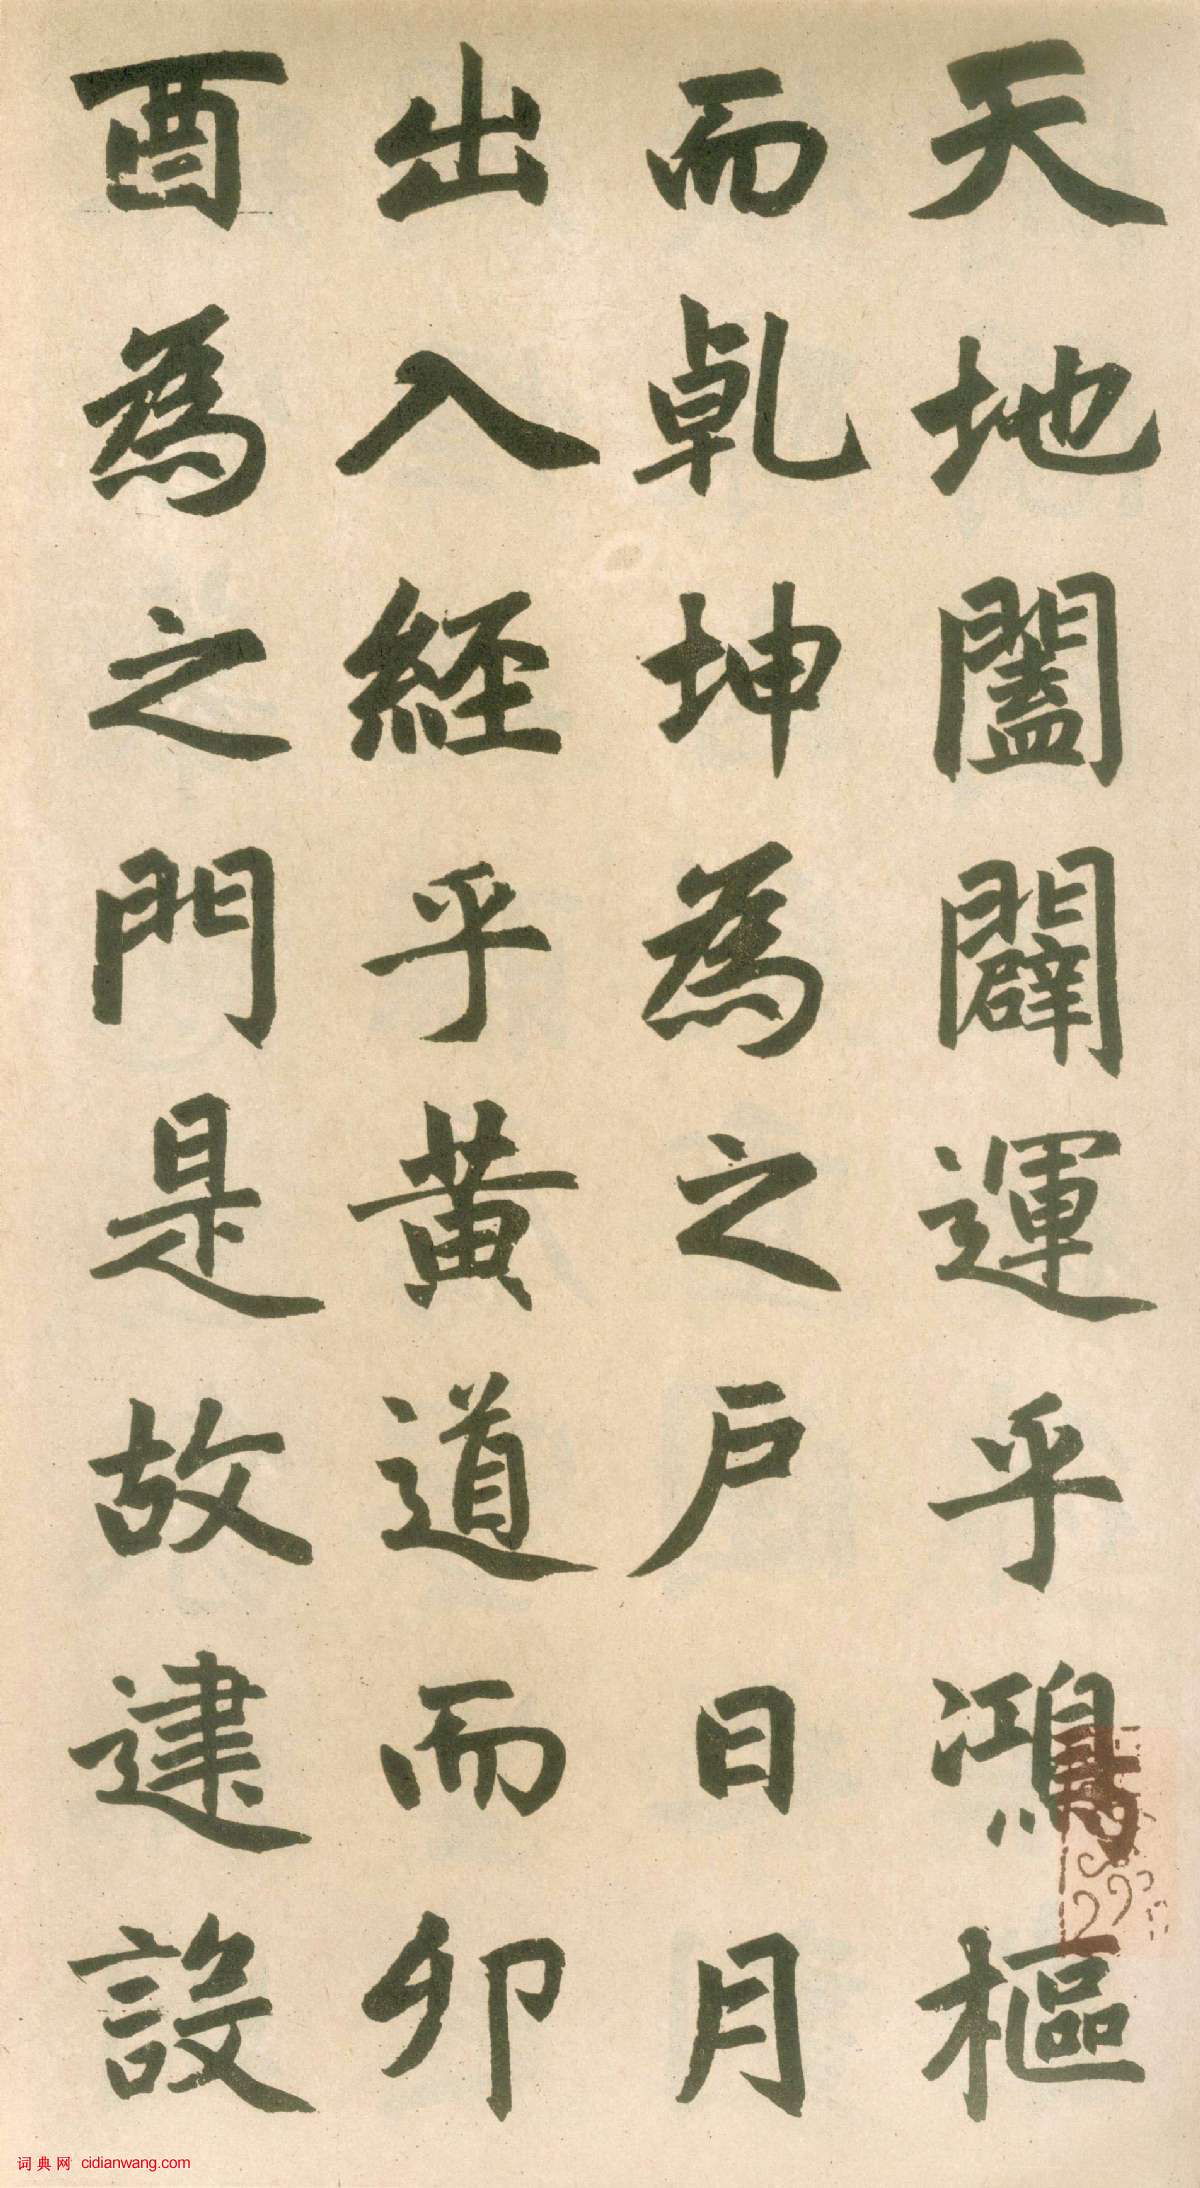 天地闔闢運乎鴻樞
而乹坤為之戶日月
出入經乎黃道而卯
酉為之門是故建設
词典网 cidianwang.com